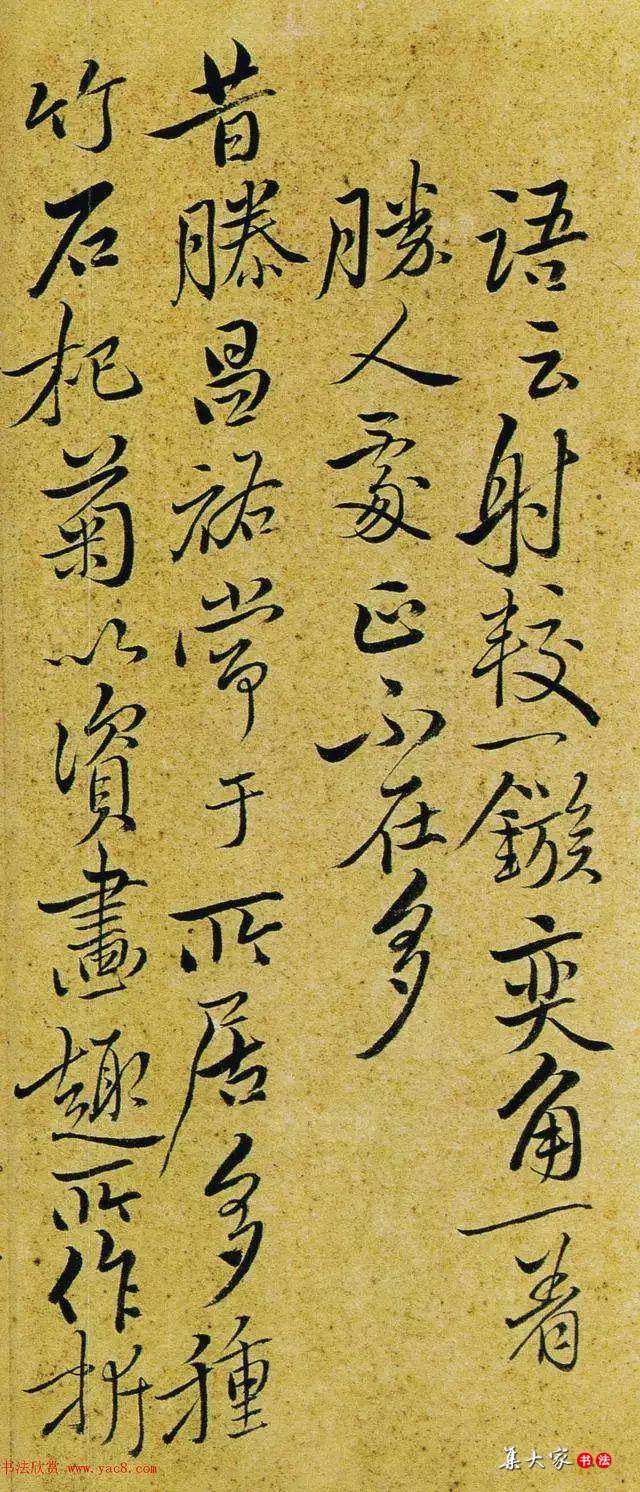 語云射較一鏃奕角一着
勝人處正不在多
昔滕昌祐常于所居多種
竹石杞菊以資畫趣所作折
书法欣赏 www.yac8.com
集大家 书法